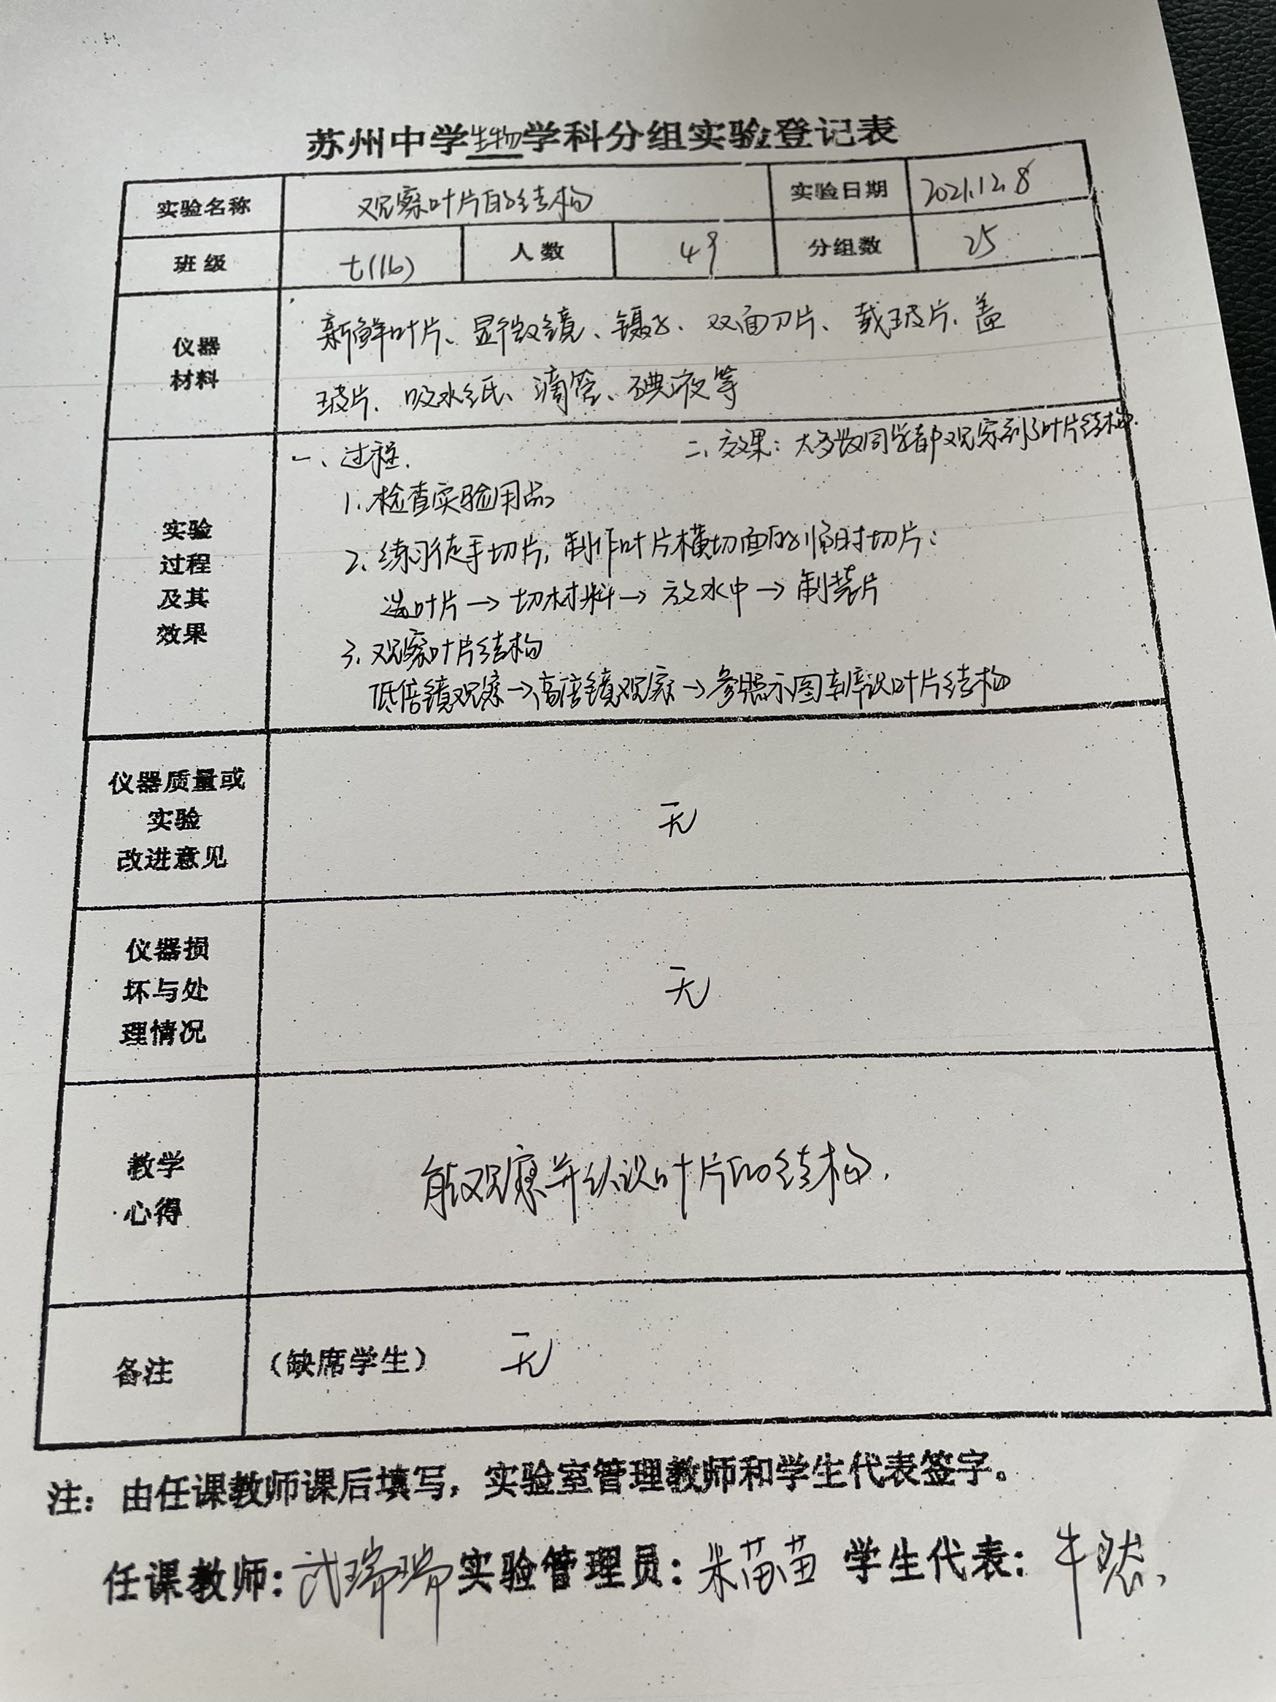 苏州中学生物学科分组实验登记表
实验名称 观察叶片的结构 实验日期 2021.12.8
班级 七(16) 人数 49 分组数 25
仪器
材料
新鲜叶片、显微镜、镊子、双面刀片、载玻片、盖
玻片、吸水纸、滴管、碘液等
实验
过程
及其
效果
一、过程.
二、效果：大多数同学都观察到了叶片结构.
1.检查实验用品
2.练习徒手切片,制作叶片横切面的临时切片：
选叶片→切材料→放水中→制装片
3.观察叶片结构
低倍镜观察→高倍镜观察→参照示图辨识叶片结构
仪器质量或
实验
改进意见
无
仪器损
坏与处
理情况
无
教学
心得
能观察并认识叶片的结构.
备注 （缺席学生） 无
注：由任课教师课后填写，实验室管理教师和学生代表签字。
任课教师：武瑞瑞 实验管理员：朱苗苗 学生代表：牛